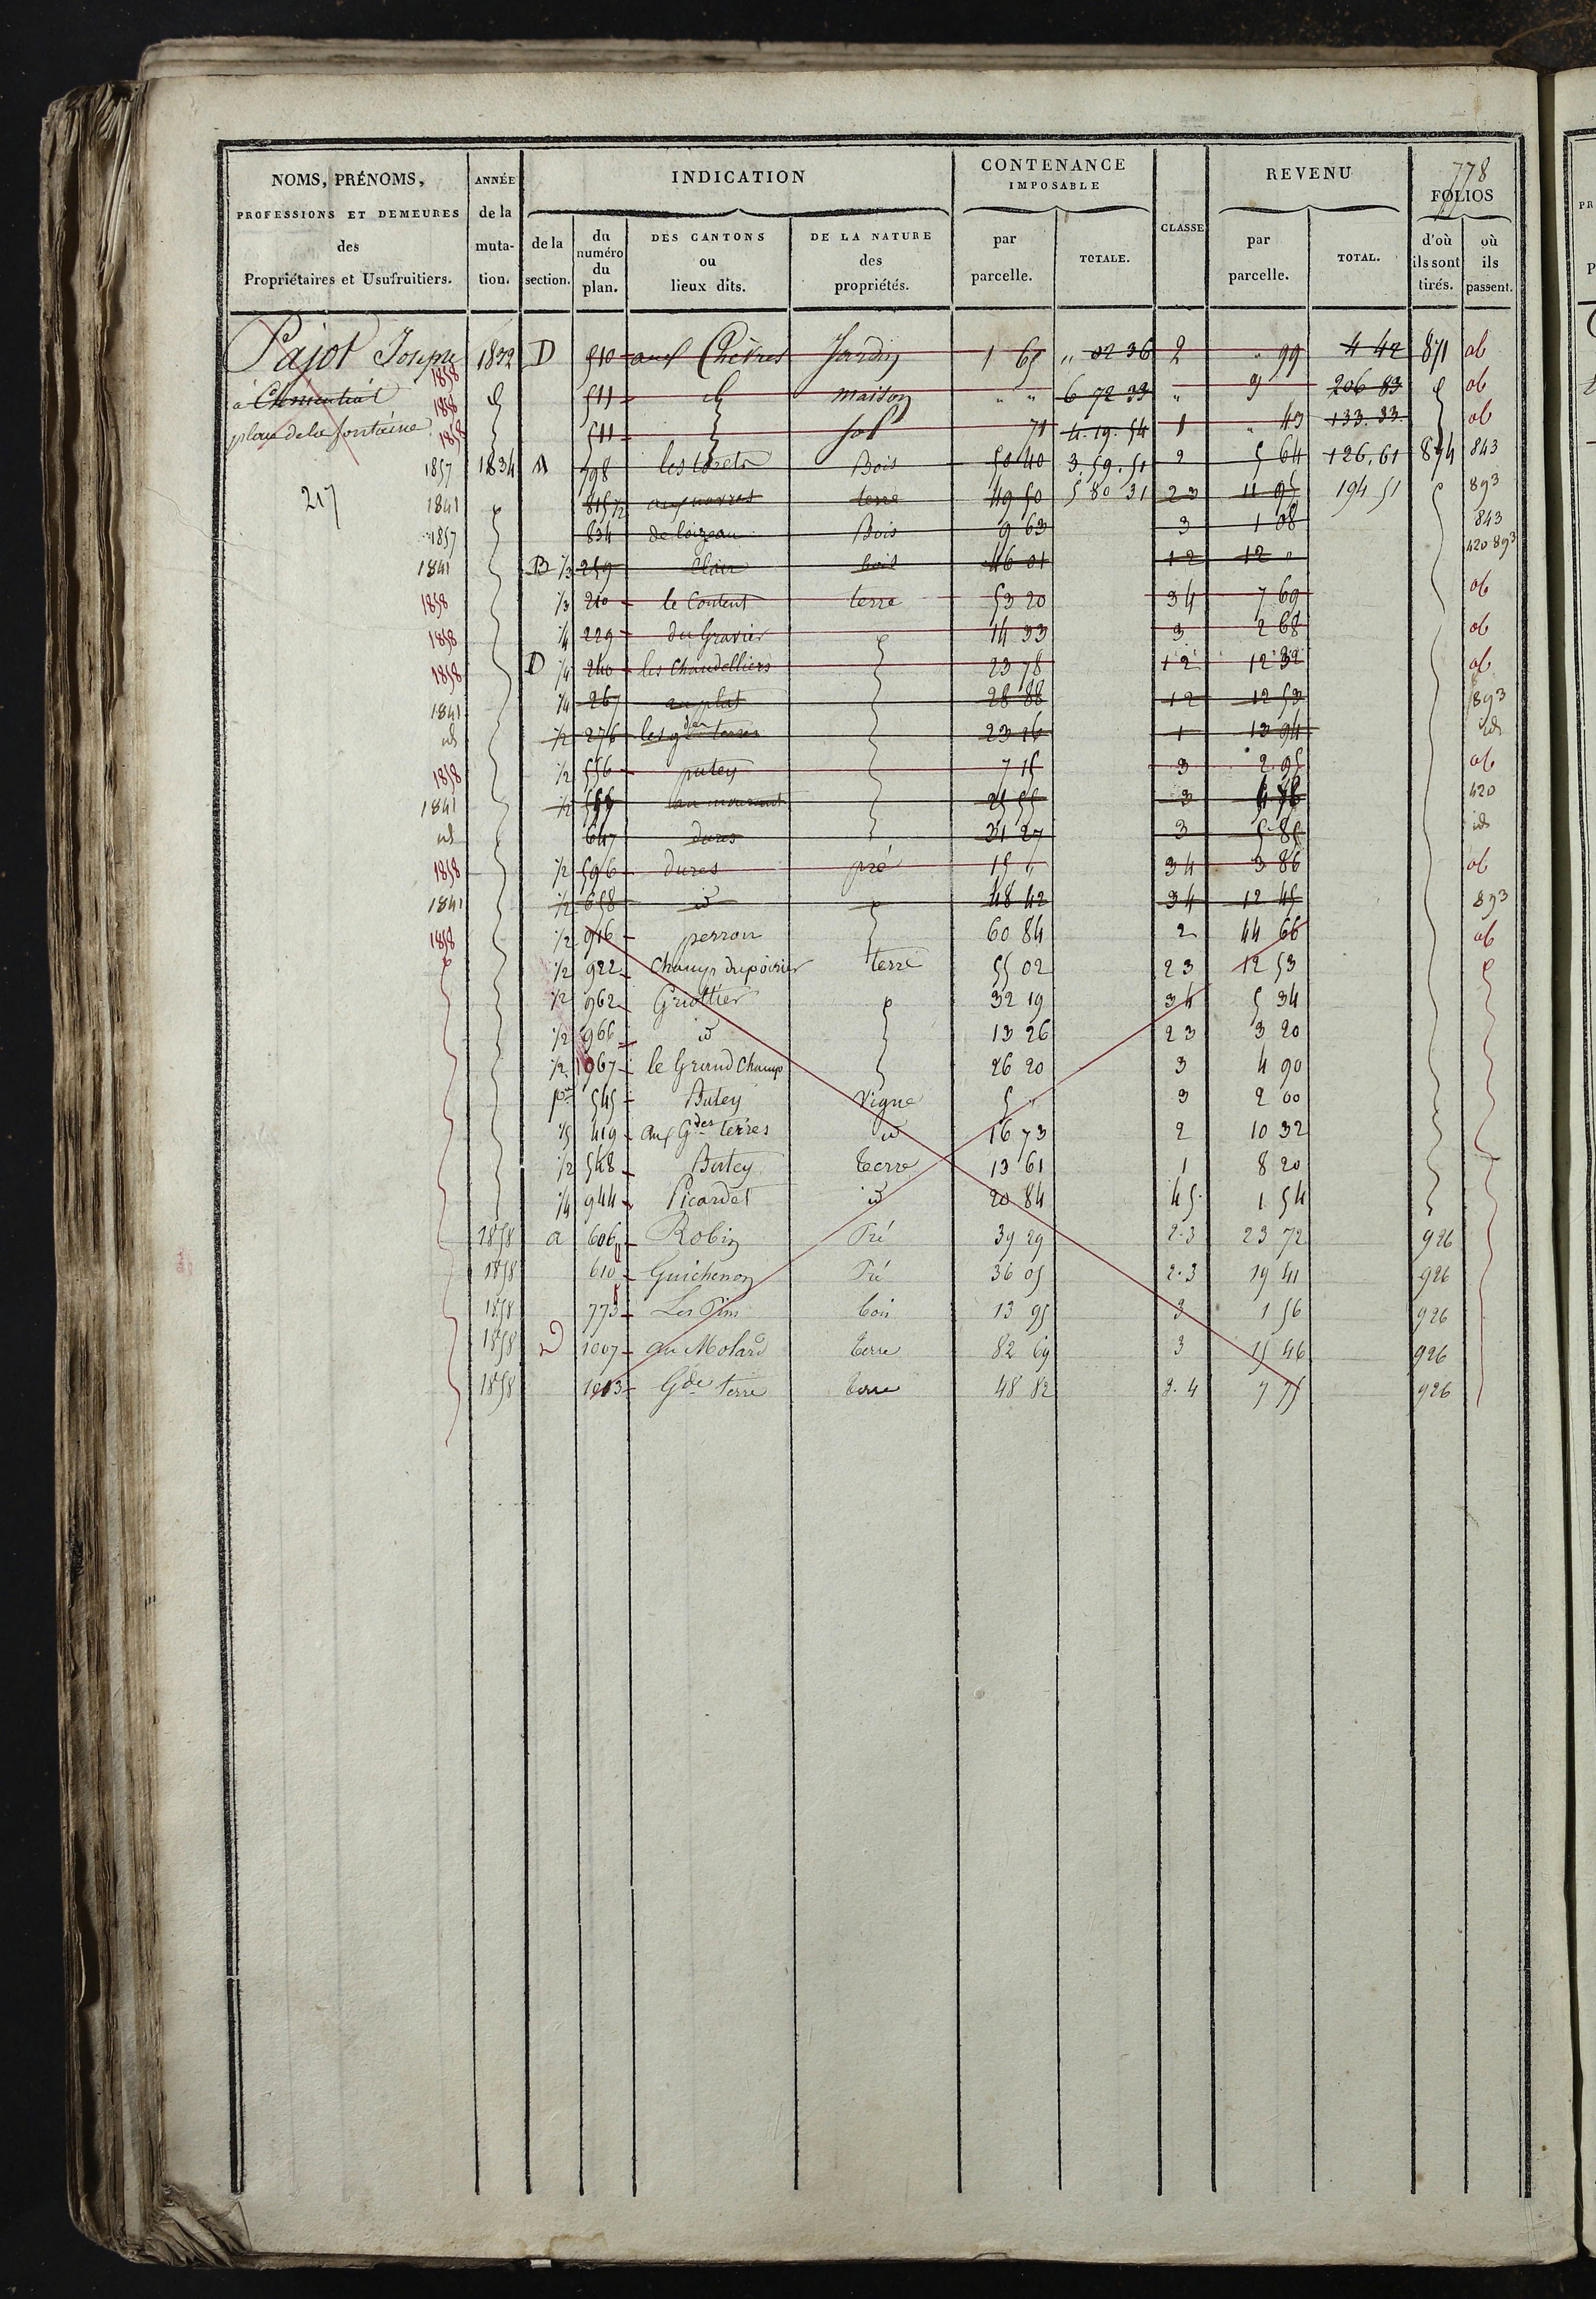 778
NOMS, PRÉNOMS, ANNÉE INDICATION CONTENANCE IMPOSABLE CLASSE REVENU FOLIOS
PROFESSIONS ET DEMEURES des Propriétaires et Usufruitiers. de la mutation. de la section. du numéro du plan. DES CANTONS ou lieux dits. DE LA NATURE des propriétés. par parcelle. TOTALE. par parcelle. TOTAL. d'où ils sont tirés. où ils passent.
Pajot Joseph 1832 D 510 aux Chèvres Jardin 1 65 " 02 36 2 " 99 4 42 871 ab
à 1858 511 maison " " 6 72 33 " 9 206 83 ab
place de la fontaine 1858 1858 511 Sol 71 4.19.54 1 " 43 133.33 ab
1857 1834 A 798 Bois 50 40 3.59.51 2 5 64 126.61 894 843
217 1841 815 1/2 terre 49 50 5 80 31 23 11 95 194 51 893
1857 834 de loizeau Bois 9 63 3 1 08 843
1841 B 1/3 259 Clair bois 46 01 12 12 " 420 893
1858 1/3 210 le Content terre 53 20 34 7 69 ab
1858 1/4 229 du Gravier 14 33 3 2 68 ab
1858 D 1/4 240 les Chandelliers 23 78 12 12 32 ab
1841 1/4 267 au plat 28 88 12 12 53 893
id 1/2 276 les gdes terres 23 16 1 13 94 id
1858 1/2 556 putey 7 15 3 2 95 ab
1841 1/2 25 55 3 420
id 647 dures 31 27 3 5 85 id
1858 1/2 596 dures pré 15 " 34 3 86 ab
1841 1/2 658 id 48 42 34 12 45 893
1858 1/2 916 perron 60 84 2 44 66 ab
1/2 922 Champ du poirier terre 55 02 23 12 53
1/2 962 Griottier 32 19 34 5 34
1/2 966 id 13 26 23 3 20
1/2 1067 le Grand Champ 26 20 3 4 90
pie 545 Butey Vigne 5 " 3 2 00
1/5 419 aux Gdes terres id 16 73 2 10 32
1/2 548 Butey terre 13 61 1 8 20
1/4 944 Picardet id 20 84 45 1 54
1858 a 606 Robin Pré 39 29 2.3 23 72 926
1858 610 Guichenon Pré 36 05 2.3 19 41 926
1858 773 Les Pins bois 13 95 3 1 56 926
1858 D 1007 au Molard terre 82 69 3 15 46 926
1858 1013 Gde terre terre 48 82 3.4 7 75 926